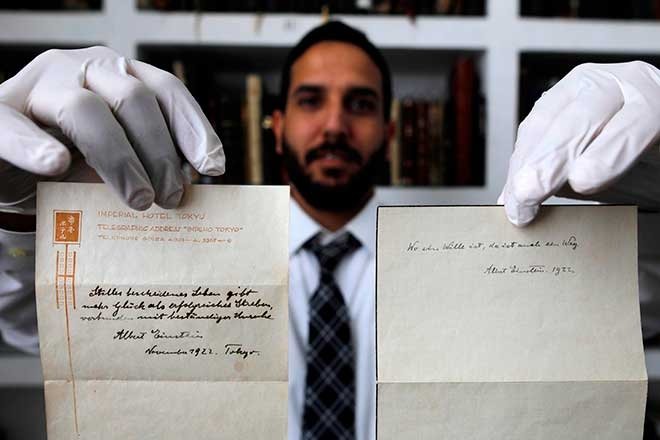 IMPERIAL HOTEL TOKYO
TELEGRAPHIC ADDRESS "IMPEHO TOKYO"
TELEPHONE
Stilles bescheidenes Leben gibt
mehr Glück als erfolgreiches Streben,
verbunden mit beständiger Unruhe.
Albert Einstein
November 1922. Tokyo.
Wo ein Wille ist, da ist auch ein Weg
Albert Einstein. 1922.